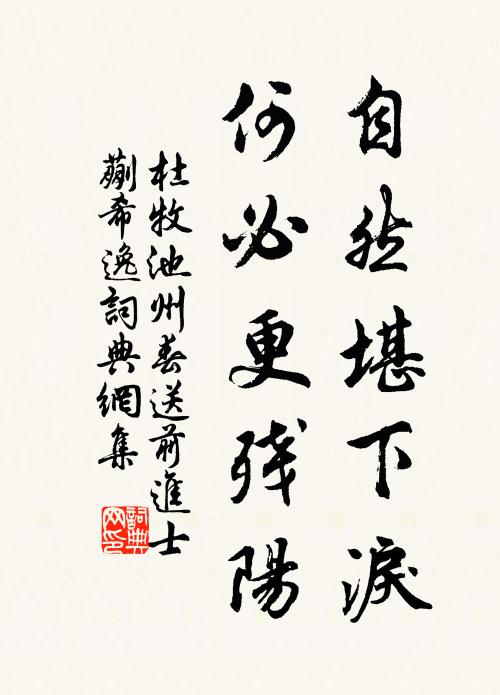 自然堪下淚
何必更殘陽
杜牧池州春送前進士
蒯希逸詞典網集
詞典
网印